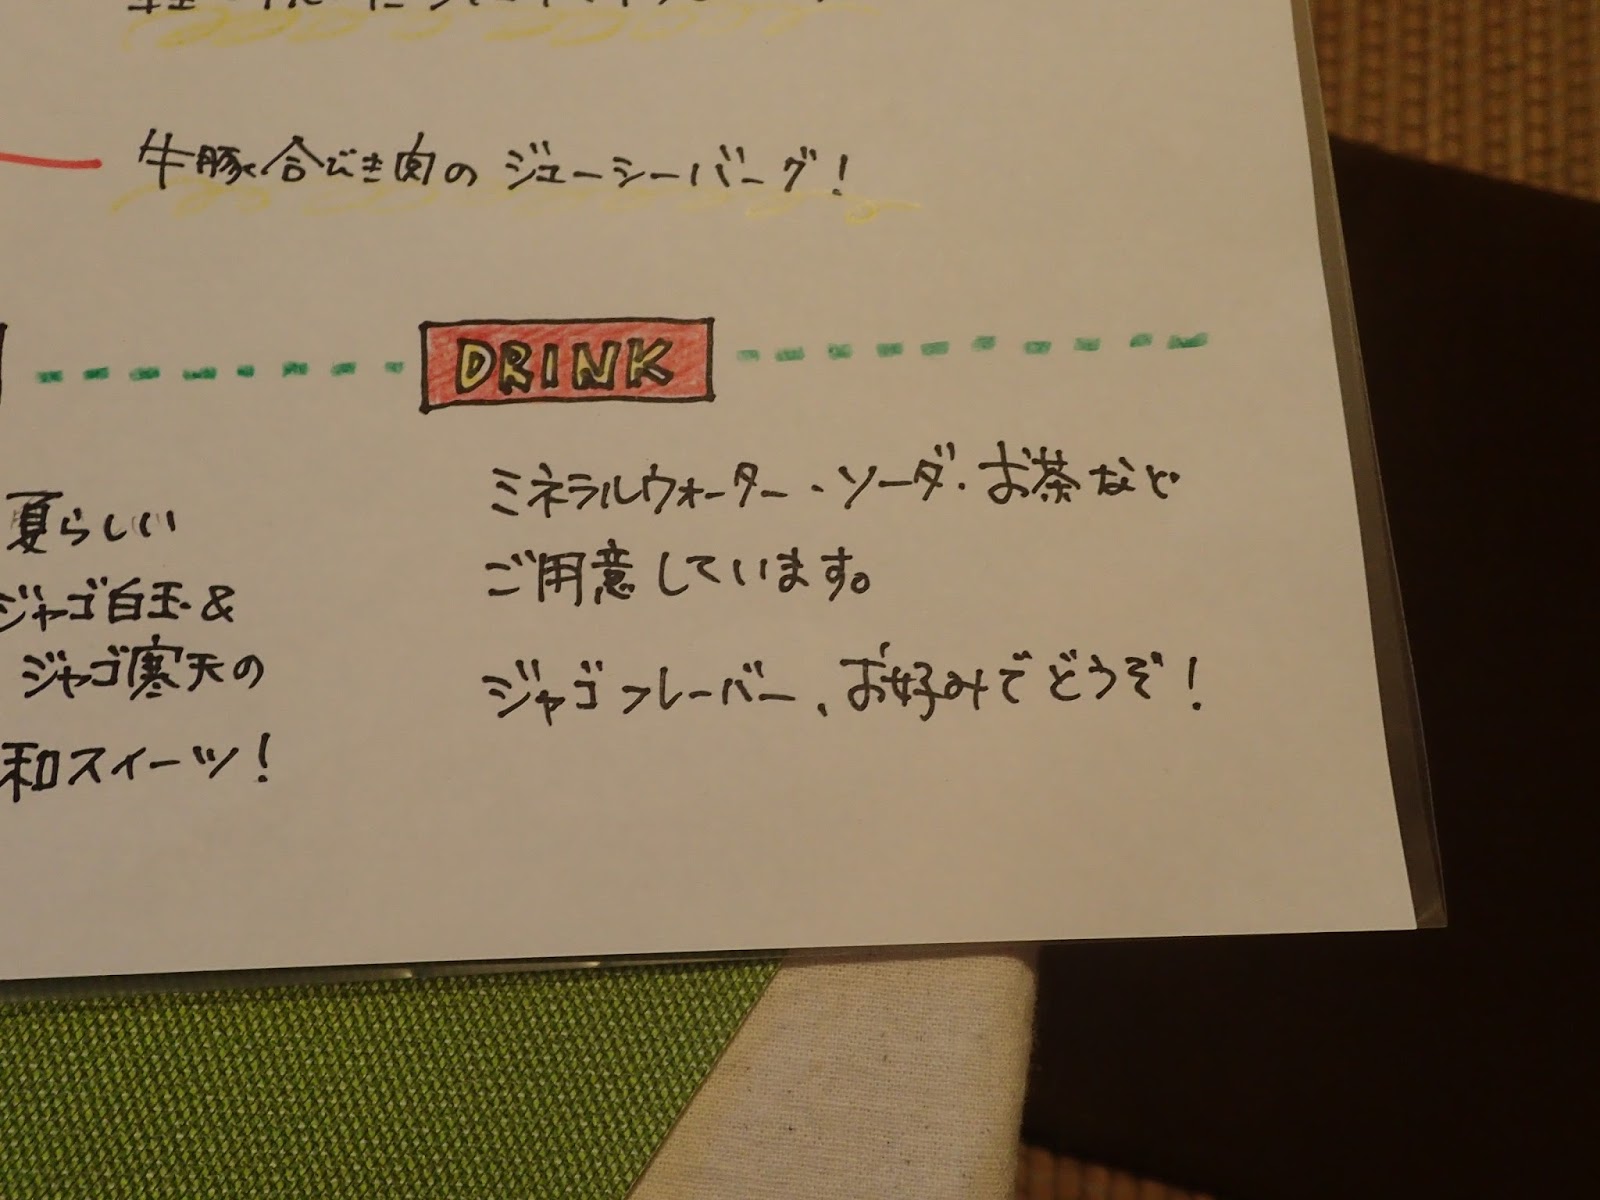 牛豚合びき肉のジューシーバーグ！
DRINK
夏らしい
ジャゴ白玉&
ジャゴ寒天の
和スイーツ！
ミネラルウォーター、ソーダ、お茶など
ご用意しています。
ジャゴフレーバー、お好みでどうぞ！